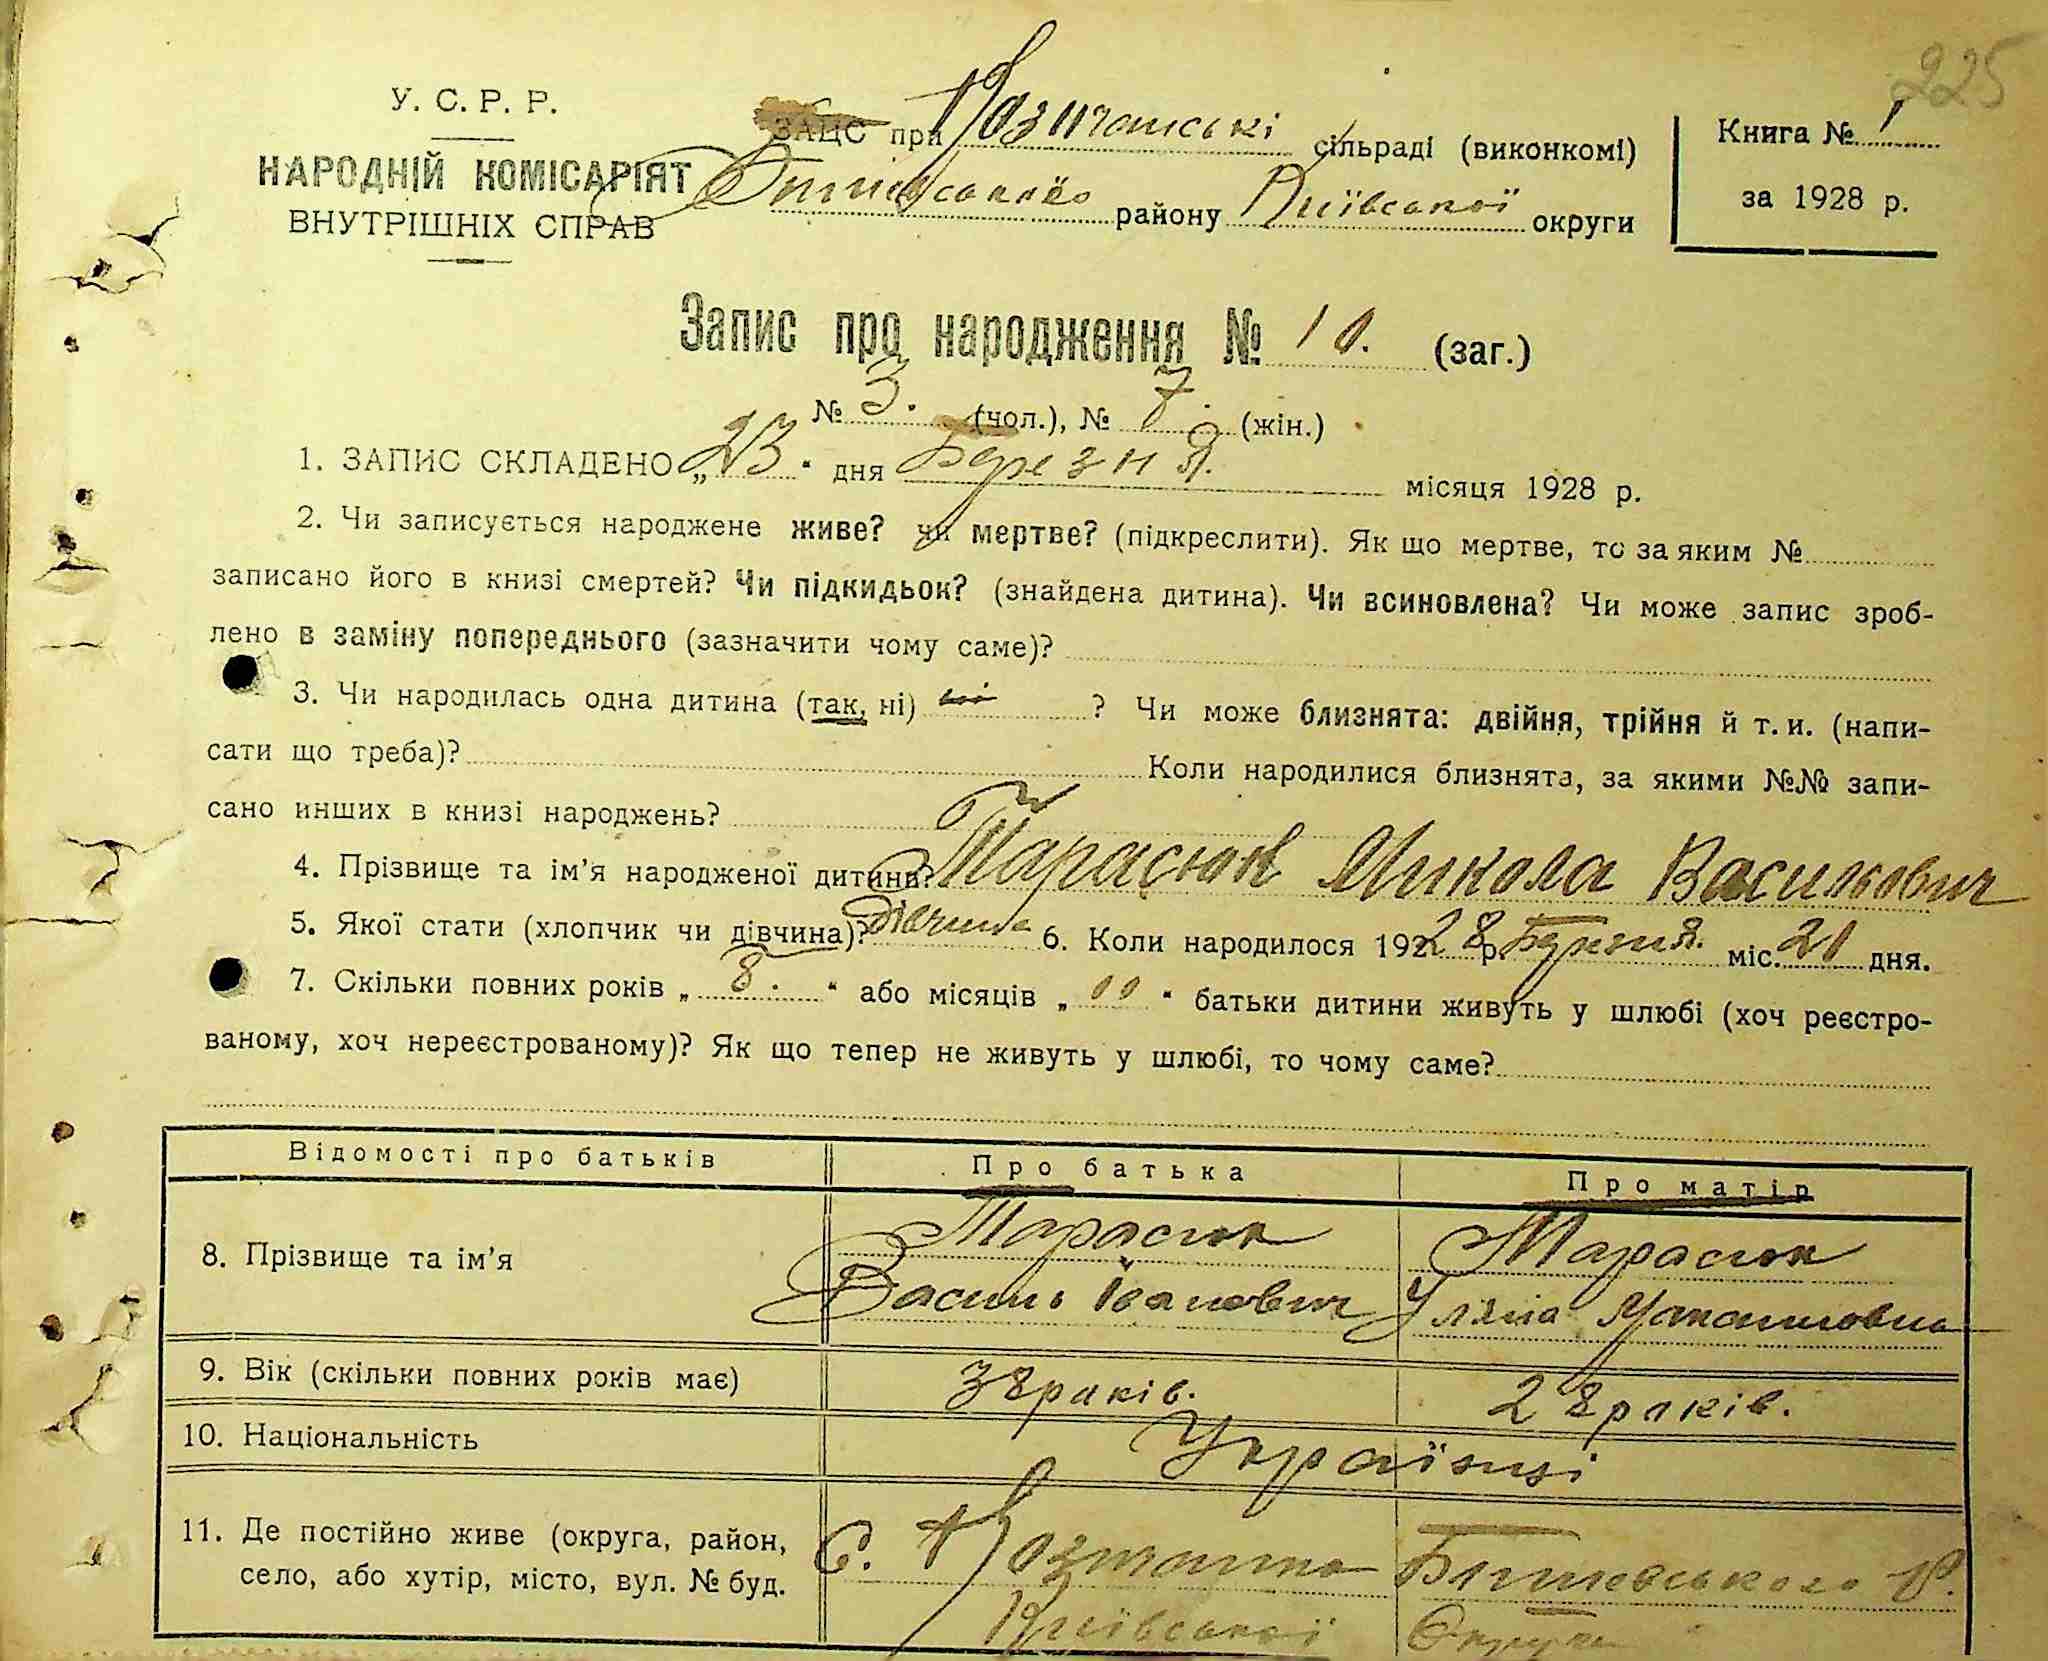 225
У. С. Р. Р.
НАРОДНІЙ КОМІСАРІЯТ
ВНУТРІШНІХ СПРАВ
ЗАЦС при сільраді (виконкомі)
району Київської округи
Книга № 1
за 1928 р.
Запис про народження № 10. (заг.)
№ 3. (чол.), № 7. (жін.)
1. ЗАПИС СКЛАДЕНО „23“ дня Березня. місяця 1928 р.
2. Чи записується народжене живе? чи мертве? (підкреслити). Як що мертве, то за яким №
записано його в книзі смертей? Чи підкидьок? (знайдена дитина). Чи всиновлена? Чи може запис зроб-
лено в заміну попереднього (зазначити чому саме)?
3. Чи народилась одна дитина (так, ні) ? Чи може близнята: двійня, трійня й т. и. (напи-
сати що треба)? Коли народилися близнята, за якими №№ запи-
сано инших в книзі народжень?
4. Прізвище та ім'я народженої дитини? Тарасюк Микола Васильович
5. Якої стати (хлопчик чи дівчина)? дівчина 6. Коли народилося 1928 р. Березня. міс. 21 дня.
7. Скільки повних років „8.“ або місяців „00“ батьки дитини живуть у шлюбі (хоч реєстро-
ваному, хоч нереєстрованому)? Як що тепер не живуть у шлюбі, то чому саме?
Відомості про батьків Про батька Про матір
8. Прізвище та ім'я Тарасюк Василь Іванович Тарасюк Уляна Максимовна
9. Вік (скільки повних років має) 38 раків. 28 раків.
10. Національність Українці
11. Де постійно живе (округа, район,
село, або хутір, місто, вул. № буд.
С. Бишевського Р.
Київської Округи